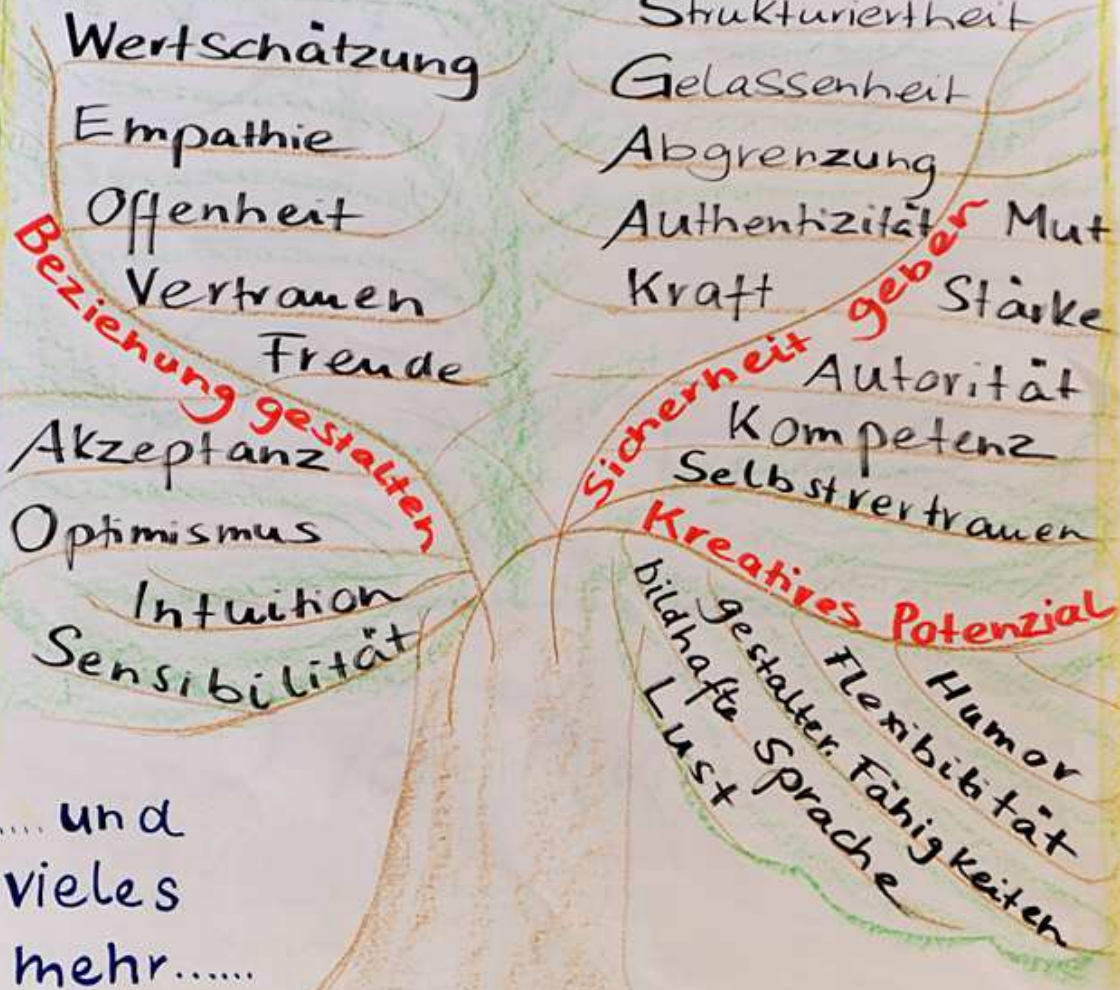 Wertschätzung
Empathie
Offenheit
Vertrauen
Freude
Beziehung gestalten
Akzeptanz
Optimismus
Intuition
Sensibilität
.... und
vieles
mehr......
Strukturiertheit
Gelassenheit
Abgrenzung
Authentizität
Mut
Kraft
Stärke
Sicherheit geben
Autorität
Kompetenz
Selbstvertrauen
Kreatives Potenzial
Humor
Flexibilität
gestalter. Fähigkeiten
bildhafte Sprache
Lust